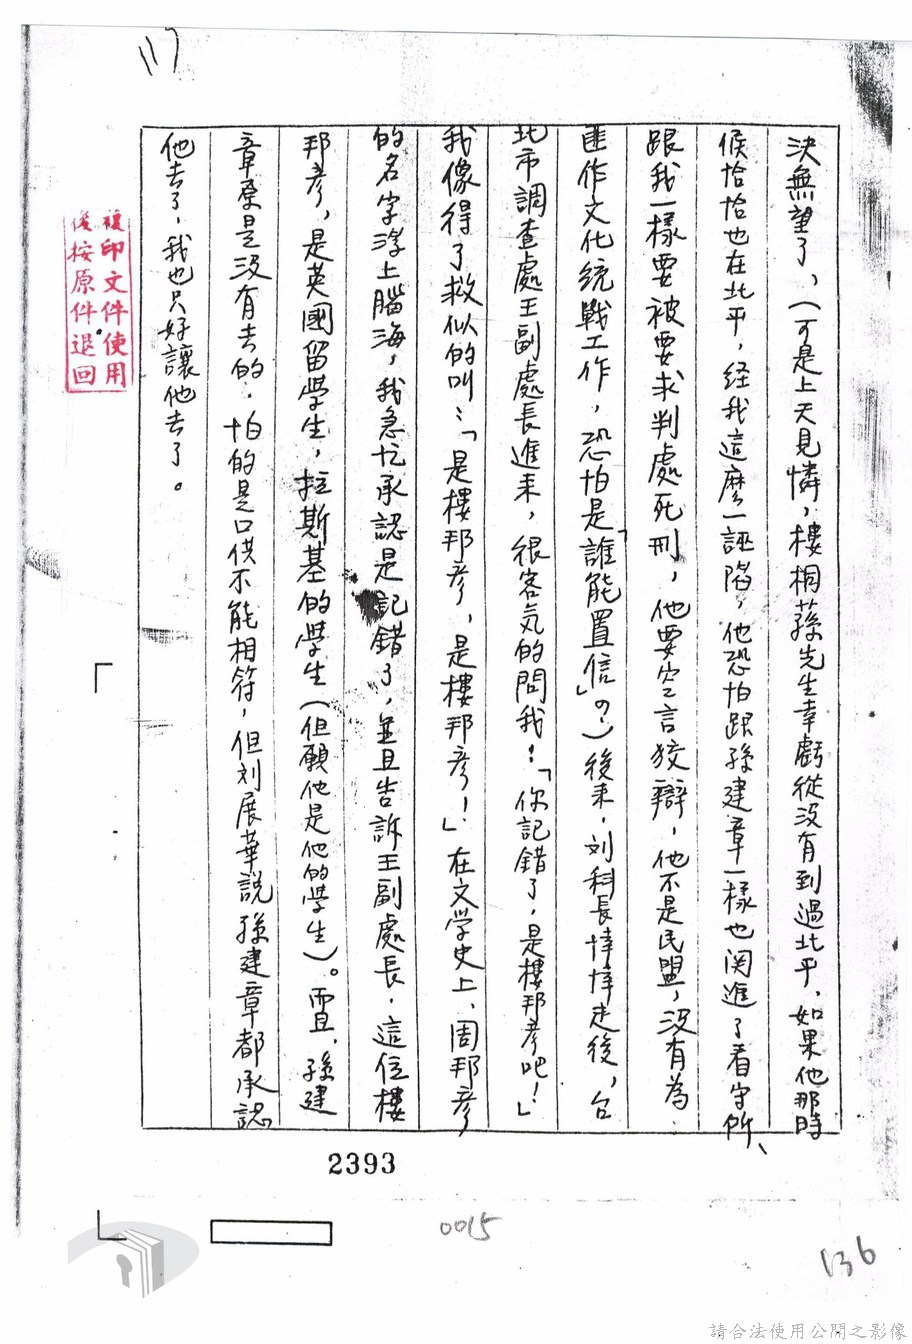 117
決無望了，（可是上天見憐，樓桐蓀先生幸虧從沒有到過北平，如果他那時
候恰恰也在北平，經我這麽一誣陷，他恐怕跟孫建章一樣也関進了看守所、
跟我一樣要被要求判處死刑，他要空言狡辯，他不是民盟，沒有為
匪作文化統戰工作，恐怕是「誰能置信」の）後来，刘科長悻悻走後，台
北市調查處王副處長進来，很客気的問我：「你記錯了，是樓邦彥吧！」
我像得了救似的叫：「是樓邦彥，是樓邦彥！」在文学史上、周邦彥
的名字浮上腦海，我急忙承認是記錯了，並且告訴王副處長，這位樓
邦彥，是英國留學生，拉斯基的學生（但願他是他的學生）。而且，孫建
章原是沒有去的，怕的是口供不能相符，但刘展華説孫建章都承認
他去了，我也只好讓他去了。
複印文件使用
後按原件退回
2393
0015
136
請合法使用公開之影像